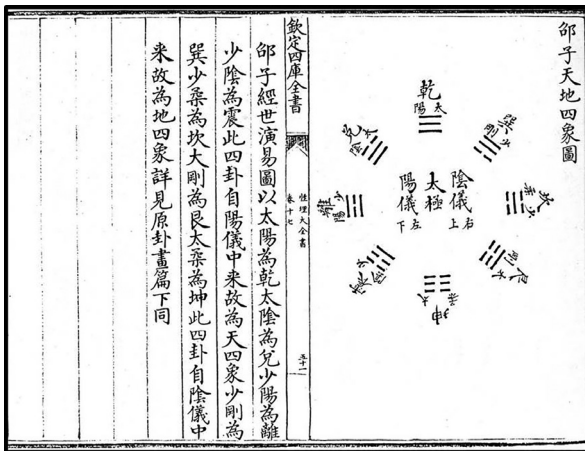 邵子天地四象圖
乾
太陽
巽
少剛
坎
少柔
艮
剛
坤
太柔
震
少陰
離
少陽
兌
太陰
陰儀
右上
太極
陽儀
左下
欽定四庫全書
性理大全書
卷十七
五十一
邵子經世演易圖以太陽為乾太陰為兌少陽為離
少陰為震此四卦自陽儀中来故為天四象少剛為
巽少柔為坎大剛為艮太柔為坤此四卦自陰儀中
来故為地四象詳見原卦畫篇下同